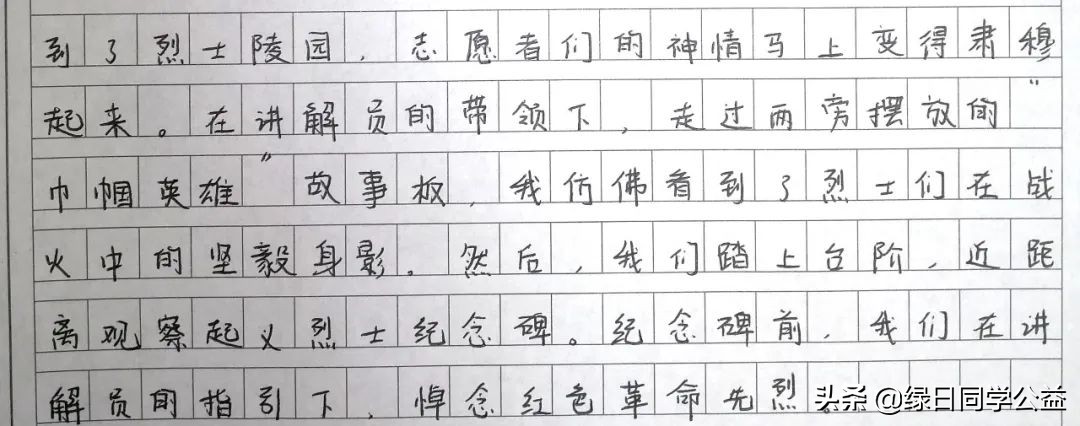 到了烈士陵园，志愿者们的神情马上变得肃穆
起来。在讲解员的带领下，走过两旁摆放的“
巾帼英雄”故事板，我仿佛看到了烈士们在战
火中的坚毅身影。然后，我们踏上台阶，近距
离观察起义烈士纪念碑。纪念碑前，我们在讲
解员的指引下，悼念红色革命先烈。
头条 @绿日同学公益